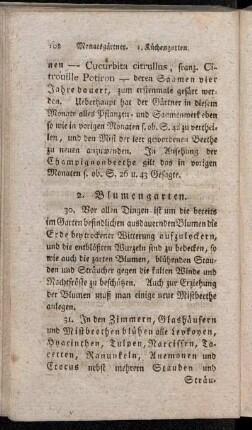 108 Monatsgärtner. 1. Küchengarten.
nen — Cucurbita citrullus, franz. Ci-
trouille Potiron — deren Saamen vier
Jahre dauert, zum erstenmale gesäet wer-
den. Ueberhaupt hat der Gärtner in diesem
Monate alles Pflanzen- und Saamenwerk eben
so wie in vorigen Monaten s. ob. S. 42 zu verthei-
len, und den Mist der leer gewordenen Beethe
zu neuen anzuwenden. In Ansehung der
Champignonbeethe gilt das in vorigen
Monaten s. ob. S. 26 u. 43 Gesagte.
2. Blumengarten.
30. Vor allen Dingen ist um die bereits
im Garten befindlichen ausdauernden Blumen die
Erde bey trockener Witterung aufzulockern,
und die entblößten Wurzeln sind zu bedecken, so
wie auch die zarten Blumen, blühenden Stau-
den und Sträucher gegen die kalten Winde und
Nachtfröste zu beschützen. Auch zur Erziehung
der Blumen muß man einige neue Mistbeethe
anlegen.
31. In den Zimmern, Glashäusern
und Mistbeethen blühen alle Levkoyen,
Hyacinthen, Tulpen, Narcissen, Ta-
cetten, Ranunkeln, Anemonen und
Crocus nebst mehrern Stauden und
Sträu-